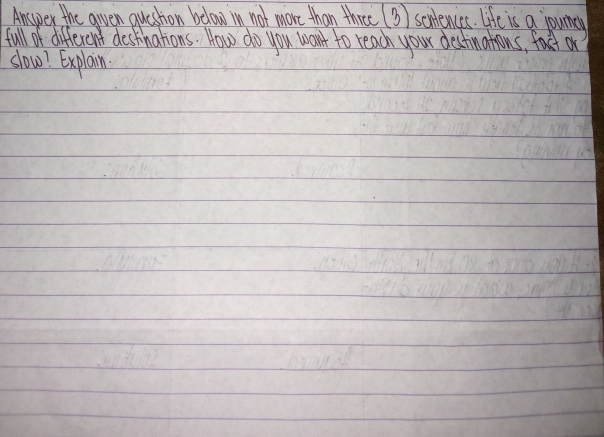 Answer the given question below in not more than three (3) sentences. Life is a journey
full of different destinations. How do you want to reach your destinations, fast or
slow? Explain.